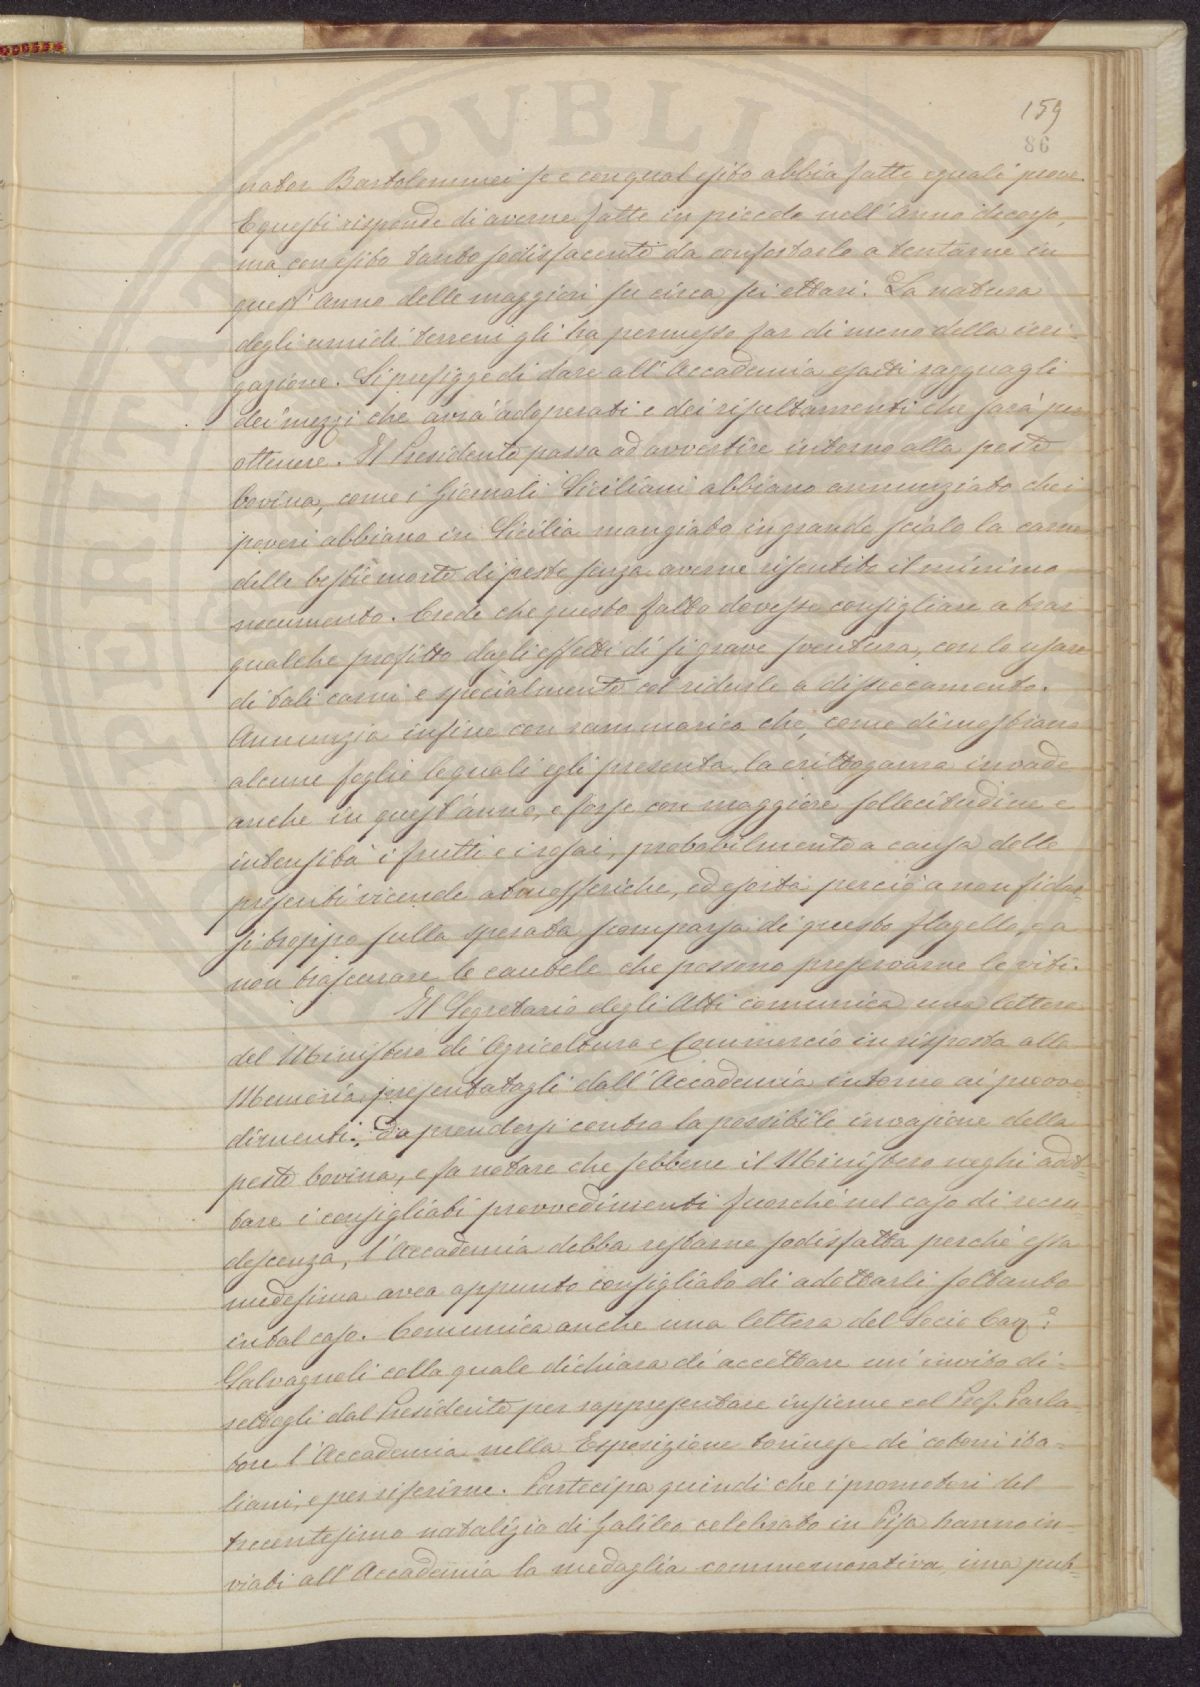 159
86
nator Bartolommei se e con qual esito abbia fatte eguali prove.
E questi risponde di averne fatte in piccolo nell'anno decorso,
ma con esito tanto sodisfacente da confortarlo a tentarne in
quest'anno delle maggiori su circa sei ettari. La natura
degli umidi terreni gli ha permesso far di meno della irri-
gazione. Si prefigge di dare all'Accademia esatti ragguagli
dei mezzi che avrà adoperati e dei risultamenti che sarà per
ottenere. Il Presidente passa ad avvertire intorno alla peste
bovina, come i Giornali Siciliani abbiano annunziato che i
poveri abbiano in Sicilia mangiato in grande sciala la carne
delle bestie morte di peste senza averne risentito il minimo
nocumento. Crede che questo fatto dovesse consigliare a trar
qualche profitto dagli effetti di sì grave sventura, con lo usare
di tali carni e specialmente col ridurle a disseccamento.
Annunzia infine con rammarico che, come dimostrano
alcune foglie le quali egli presenta, la crittogama invade
anche in quest'anno, e forse con maggiore sollecitudine e
intensità i frutti e i rosai, probabilmente a causa delle
presenti vicende atmosferiche, ed esorta perciò a non fidar-
si troppo sulla sperata scomparsa di questo flagello, e a
non trascurare le cautele che possono preservarne le viti.
Il Segretario degli Atti comunica una lettera
del Ministero di Agricoltura e Commercio in risposta alla
Memoria presentatagli dall'Accademia intorno ai provve-
dimenti da prendersi contro la possibile invasione della
peste bovina, e fa notare che sebbene il Ministero neghi adot-
tare i consigliati provvedimenti fuorchè nel caso di recru-
descenza, l'Accademia debba restarne sodisfatta perchè essa
medesima avea appunto consigliato di adottarli soltanto
in tal caso. Comunica anche una lettera del Socio Cav.e
Salvagnoli colla quale dichiara di accettare un'invito di-
rettogli dal Presidente per rappresentare insieme col Prof. Parla-
tore l'Accademia nella Esposizione torinese di cotoni ita-
liani, e per riferirne. Partecipa quindi che i promotori del
trecentesimo natalizio di Galileo celebrato in Pisa hanno in-
viati all'Accademia la medaglia commemorativa, una pub-